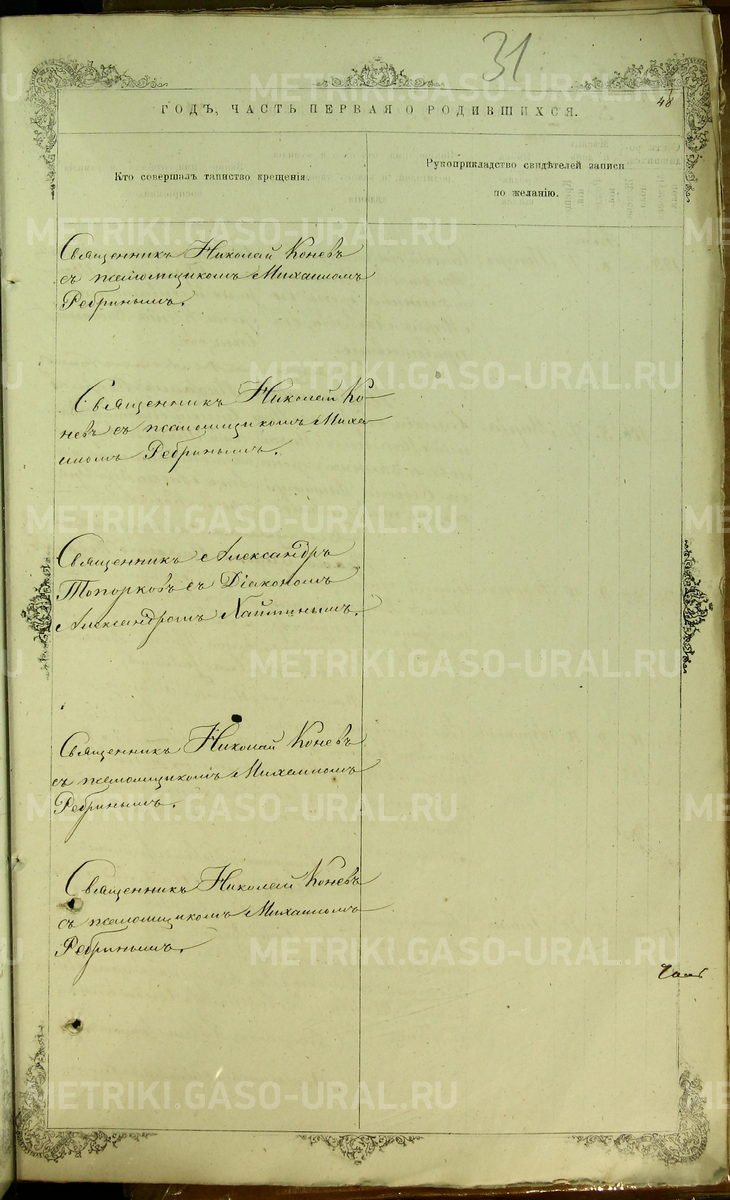 31
48
ГОДЪ, ЧАСТЬ ПЕРВАЯ О РОДИВШИХСЯ.
Кто совершалъ таинство крещенія.
Рукоприкладство свидѣтелей записи
по желанію.
Священникъ Николай Коневъ
съ псаломщикомъ Михаиломъ
Ребринымъ.
Священникъ Николай Ко-
невъ съ псаломщикомъ Миха-
иломъ Ребринымъ.
Священникъ Александръ
Топорковъ съ Діакономъ
Александромъ
Священникъ Николай Коневъ
съ псаломщикомъ Михаиломъ
Ребринымъ.
Священникъ Николай Коневъ
съ псаломщикомъ Михаиломъ
Ребринымъ.
METRIKI.GASO-URAL.RU